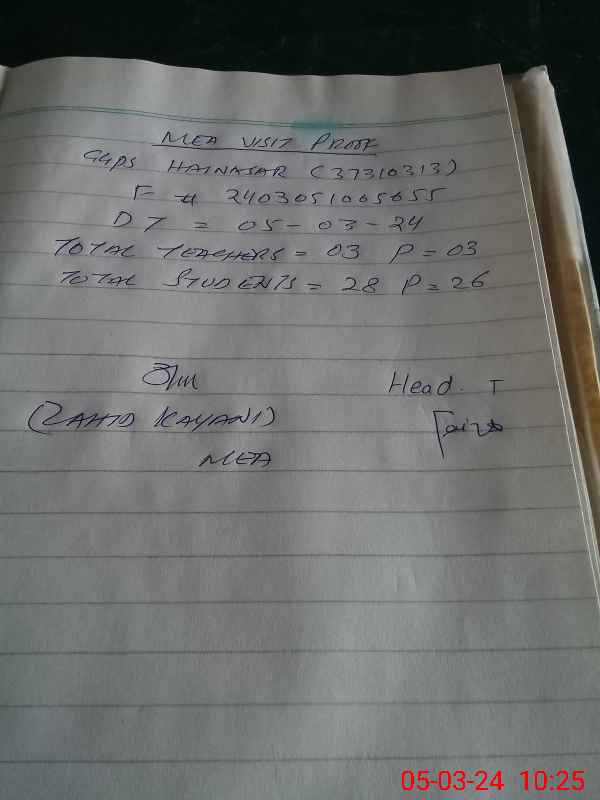 MEA VISIT PROOF
GGPS HAINASAR (37310313)
F # 2403051005055
DT = 05-03-24
TOTAL TEACHERS = 03 P = 03
TOTAL STUDENTS = 28 P = 26
Head. T
(ZAHID KAYANI)
MEA
05-03-24 10:25